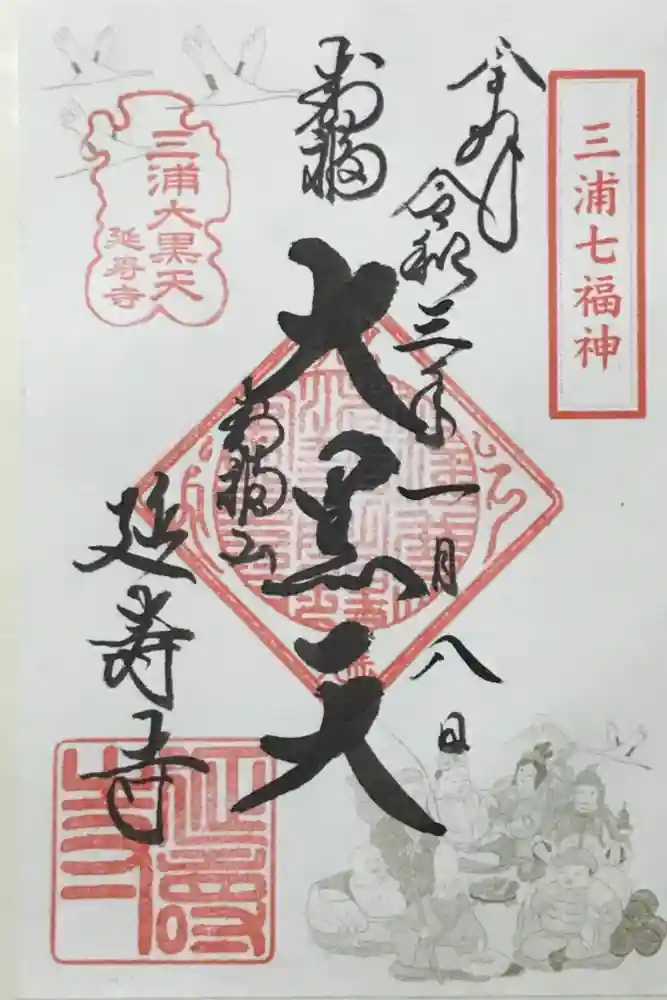 三浦七福神
奉拝
令和三年一月八日
寿福
大黒天
寿福山
延寿寺
三浦大黒天
延寿寺
延寿寺